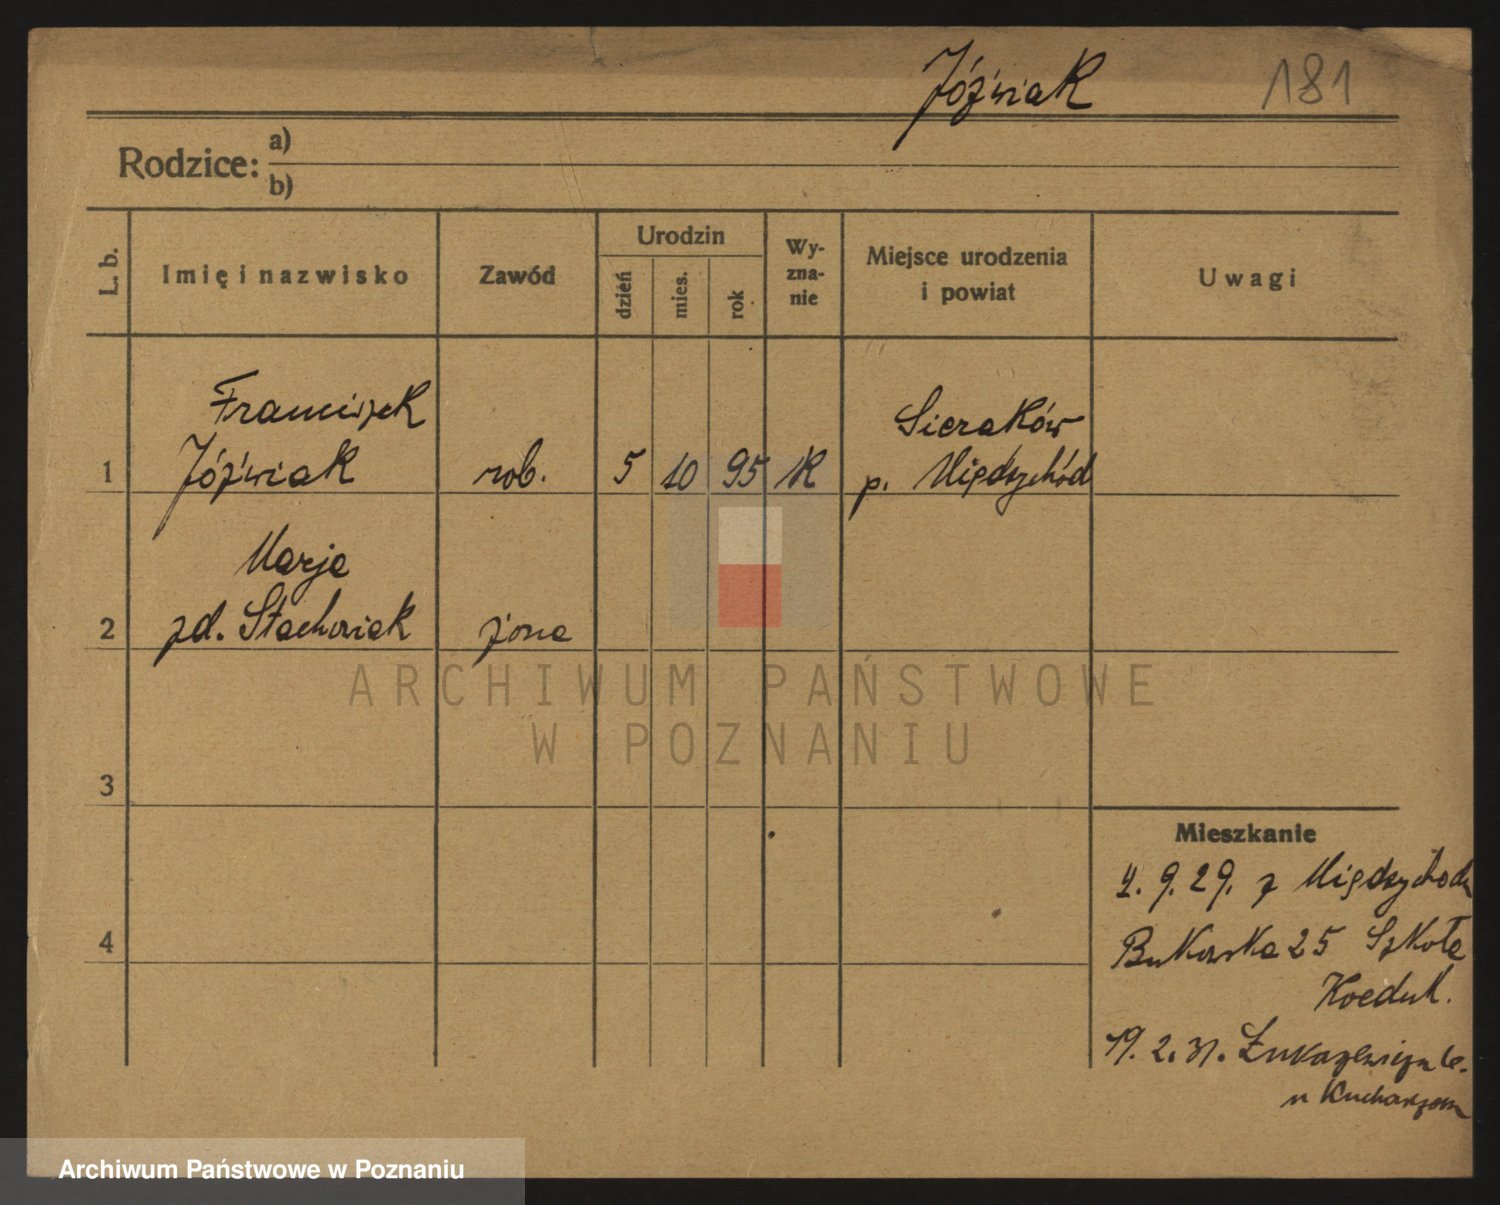 Jóźwiak 181
Rodzice: a)
b)
L. b. Imię i nazwisko Zawód Urodzin dzień mies. rok Wy-zna-nie Miejsce urodzenia i powiat Uwagi
Franciszek
Sieraków
1 Jóźwiak rob. 5 10 95 K p. Międzychód
Marja
2 zd. Stachowiak żona
ARCHIWUM PAŃSTWOWE
W POZNANIU
3
Mieszkanie
4. 9. 29. z Międzychodu
4
Bukowska 25 Szkoła
Koeduk.
19. 2. 31. Łukaszewicza
u Kucharzem
Archiwum Państwowe w Poznaniu